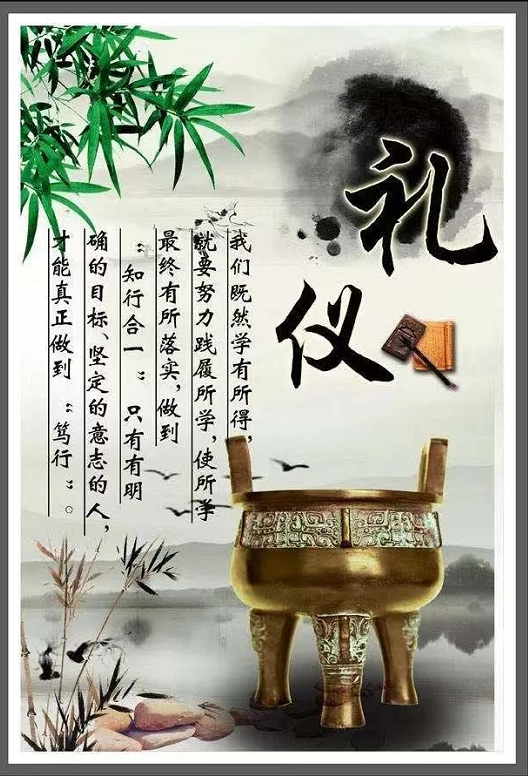 礼仪
我们既然学有所得，
就要努力践履所学，使所学
最终有所落实，做到
“知行合一”。只有有明
确的目标、坚定的意志的人，
才能真正做到“笃行”。